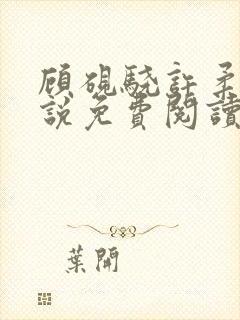 顾硯驍許柔
說免費閱讀
葉開